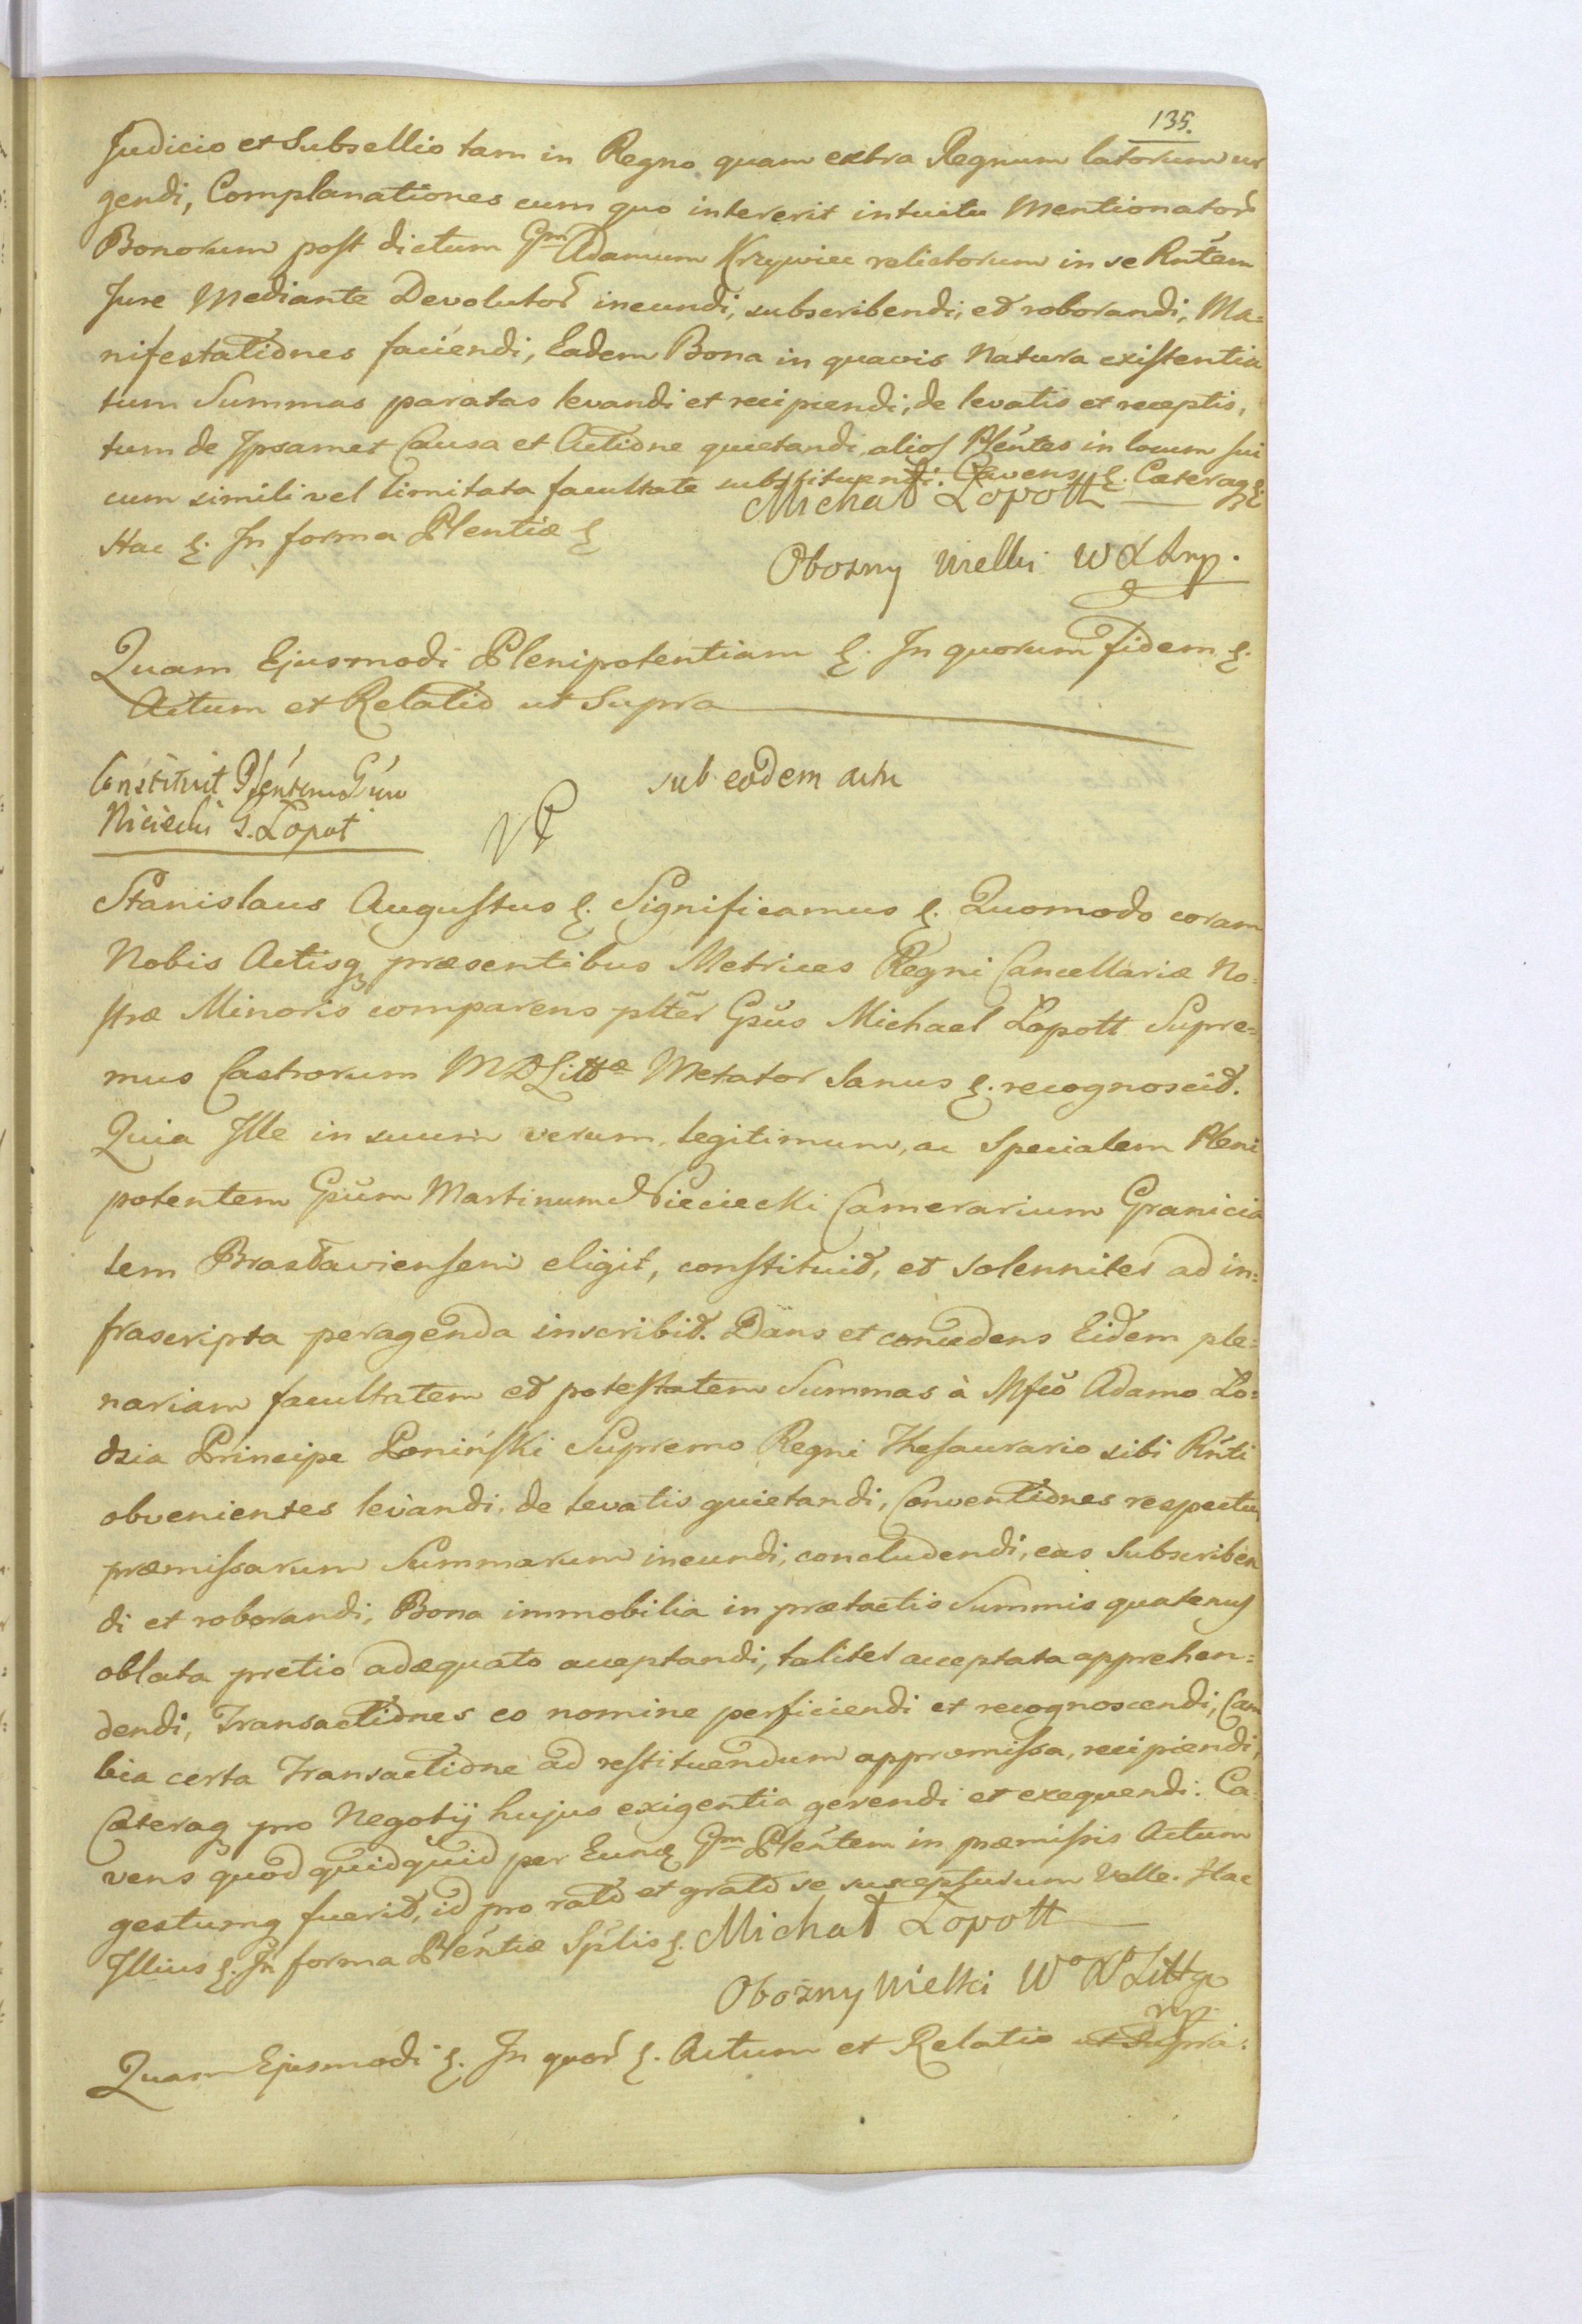 135.
Judicio et Subsellio tam in Regno quam extra Regnum latorum ur
gendi, Complanationes cum quo intererit intuitu Mentionator̃
Bonorum post dictum Gm Adamum Krzywiec relictorum in se Rñtem
Jure Mediante Devolutor̃ ineundi, subscribendi, et roborandi, Ma=
nifestationes faciendi, Eadem Bona in quavis Natura existentia
tum Summas paratas levandi et recipiendi, de levatis et receptis,
tum de Ipsamet Causa et Actione quietandi, alios Plẽntes in locum sui
cum simili vel limitata facultate substituendi. Cavens &. Caeteraq &.
Hac &. In forma Plentiæ &
Michał Łopott
Obozny Wielki WXLrp.
Quam Ejusmodi Plenipotentiam &. In quorum fidem &.
Actum et Relatio ut Supra
Constituit Plẽntem Gũm
Nieciecki G. Łopot
sub eodem actu
Stanislaus Augustus &. Significamus &. Quomodo coram
Nobis Actisq præsentibus Metrices Regni Cancellariæ No=
stræ Minoris comparens plter̃ Gsũs Michael Łopott Supre=
mus Castrorum MDLittæ Metator Sanus &. recognoscit.
Quia Ille in suum verum, legitimum, ac Specialem Pleni
potentem Gsũm Martinum Nieciecki Camerarium Granicia
lem Brasłaviensem eligit, constituit, et solenniter ad in=
frascripta peragenda inscribit. Dans et concedens Eidem ple=
nariam facultatem et potestatem Summas à Mfcõ Adamo Ło=
dzia Principe Poniński Supremo Regni Thesaurario sibi Rñti
obvenientes levandi, de levatis quietandi, Conventiones respectu
præmissarum Summarum ineundi, concludendi, eas Subscriben
di et roborandi, Bona immobilia in prætactis Summis quatenus
oblata pretio adæquato acceptandi, taliter acceptata apprehen=
dendi, Transactiones eo nomine perficiendi et recognoscendi, Cam
bia certa Transactione ad restituendum appromissa, recipiendi,
Cæteraq pro Negotij hujus exigentia gerendi et exequendi. Ca
vens quod quidquid per Eunđ Gm Plẽntem in præmissis Actum
gestumq fuerit, id pro rato et grato se suscepturum Velle. Hac
Illius &. In forma Plẽntiæ Splis &. Michał Łopott
Obozny Wielki Wo Xo Littgo
rp.
Quam Ejusmodi &. In quor̃ &. Actum et Relatio ut Supra.